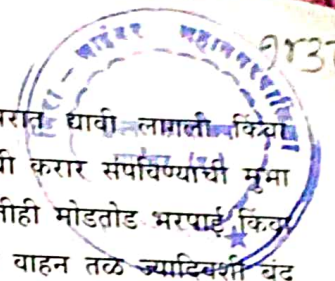 मिरा - भाईंदर महानगरपालिका
परात द्यावी लागली किंवा
पी करार संपविण्याची मुभा
नीही मोडतोड भरपाई किंवा
वाहन तळ ज्यादिवशी बंद